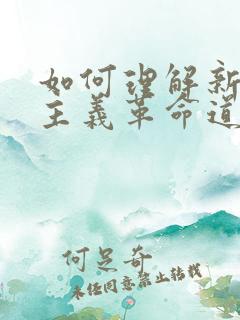 如何理解新
主義革命道
何足奇
未经同意禁止转载